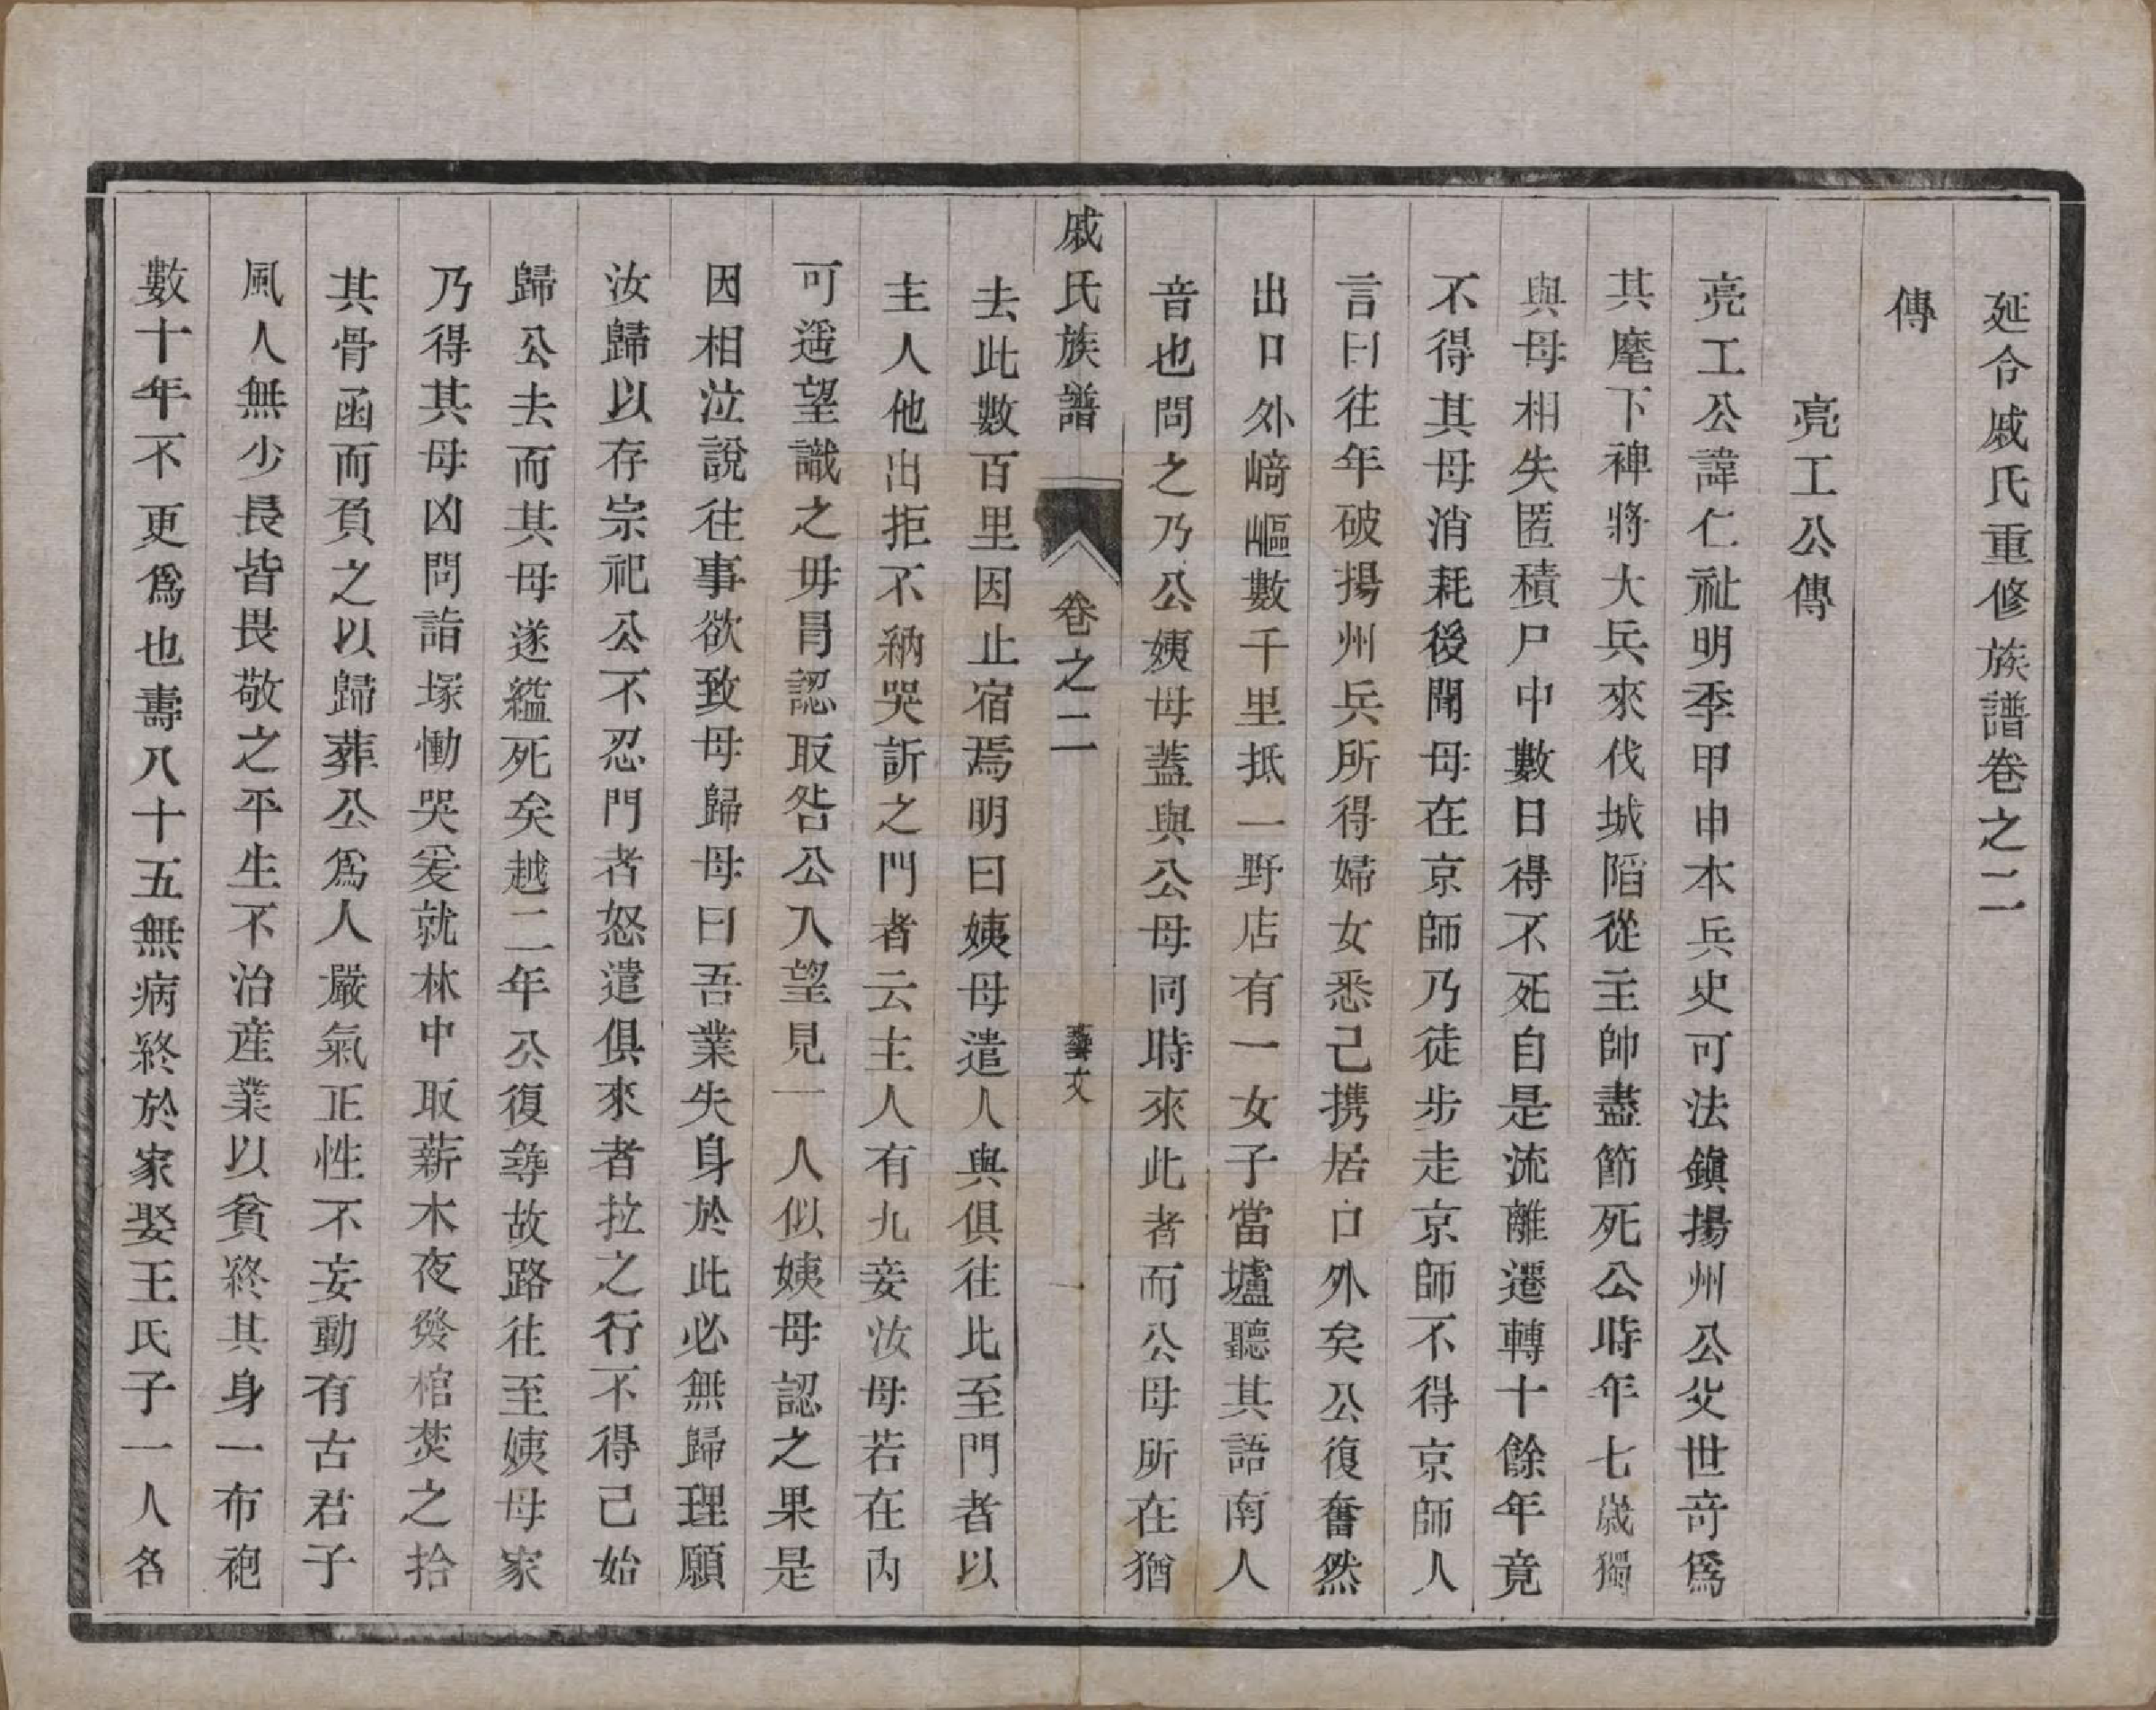 延令戚氏重修族譜卷之二
傳
亮工公傳
亮工公諱仁祉明季甲申本兵史可法鎭揚州公父世竒爲
其麾下禆將大兵來伐城陷從主帥盡節死公時年七歲獨
與母相失匿積尸中數日得不死自是流離遷轉十餘年竟
不得其母消耗後聞母在京師乃徒步走京師不得京師人
言曰往年破揚州兵所得婦女悉己携居口外矣公復奮然
出口外﨑嶇數千里抵一野店有一女子當壚聽其語南人
音也問之乃公姨母蓋與公母同時來此者而公母所在猶
戚氏族譜 卷之二 藝文 一
去此數百里因止宿焉明日姨母遣人與俱往比至門者以
主人他出拒不納哭訴之門者云主人有九妾汝母若在內
可遥望識之毋冐認取咎公入望見一人似姨母認之果是
因相泣說往事欲致母歸母曰吾業失身於此必無歸理願
汝歸以存宗祀公不忍門者怒遣俱來者拉之行不得己始
歸公去而其母遂縊死矣越二年公復尋故路往至姨母家
乃得其母凶問詣塚慟哭爰就林中取薪木夜發棺焚之拾
其骨函而負之以歸葬公爲人嚴氣正性不妄動有古君子
風人無少長皆畏敬之平生不治産業以貧終其身一布袍
數十年不更爲也壽八十五無病終於家娶王氏子一人各